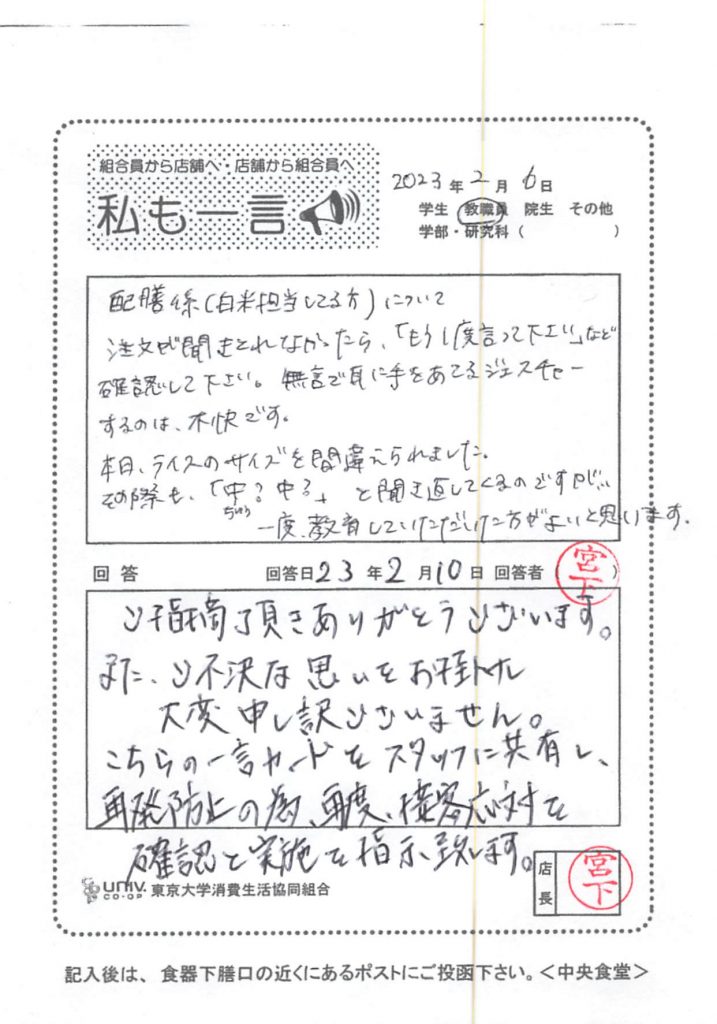 組合員から店舗へ・店舗から組合員へ
私も一言
2023年2月6日
学生 教職員 院生 その他
学部・研究科( )
配膳係(白米担当してる方)について
注文が聞きとれなかったら、「もう1度言って下さい」など
確認して下さい。無言で耳に手をあてるジェスチャー
するのは、不快です。
本日、ライスのサイズを間違えられました。
その際も、「中?中?」と聞き直してくるのですが…
ちゅう
一度、教育していただいた方がよいと思います。
回答 回答日23年2月10日 回答者 宮下)
ご指摘頂きありがとうございます。
また、ご不快な思いをお掛けし
大変申し訳ございません。
こちらの一言カードをスタッフに共有し、
再発防止の為、再度、接客応対を
確認と実施を指示致します。
店長 宮下
univ. CO-OP 東京大学消費生活協同組合
記入後は、食器下膳口の近くにあるポストにご投函下さい。<中央食堂>